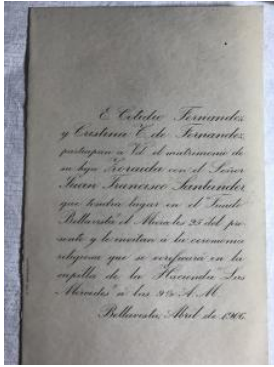 E. Celedio Fernandez
y Cristina V. de Fernandez
participan a Vd. el matrimonio de
su hija Zoranda con el Señor
Juan Francisco Santander
que tendrá lugar en el "Fundo
Bellavista" el Miércoles 25 del pre-
sente y le invitan á la ceremonia
religiosa que se verificará en la
capilla de la Hacienda "Las
Mercedes" á las 9½ A.M.
Bellavista, Abril de 1906